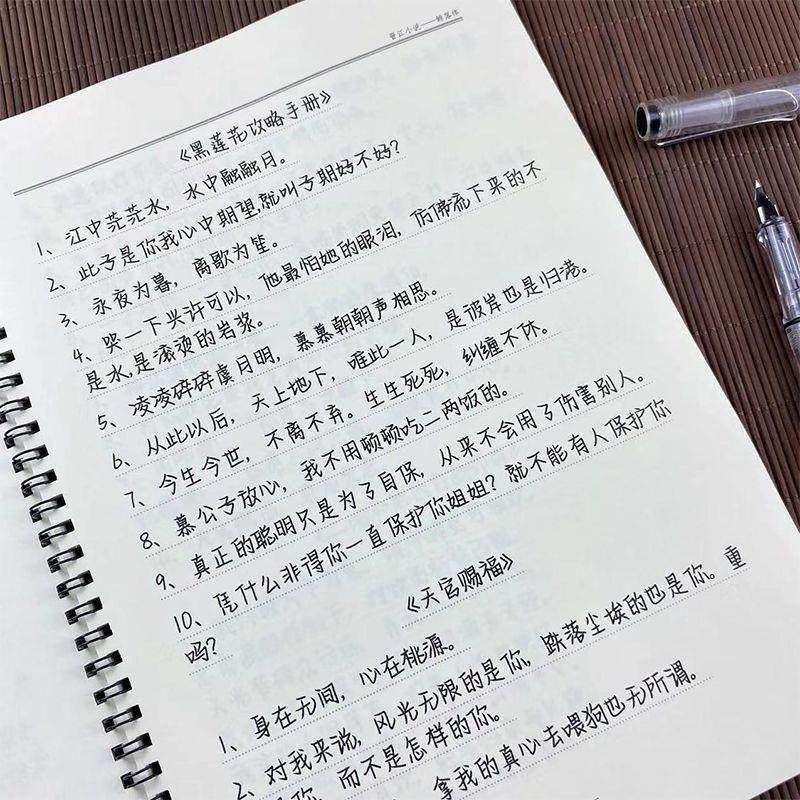 晋江小说——鲸落体
《黑莲花攻略手册》
1、江中茫茫水，水中融融月。
2、此子是你我心中期望,就叫子期好不好?
3、永夜为暮，离歌为笙。
4、哭一下兴许可以，他最怕她的眼泪，仿佛流下来的不
是水,是滚烫的岩浆。
5、凌凌碎碎虞月明，慕慕朝朝声相思。
6、从此以后，天上地下，唯此一人，是彼岸也是归港。
7、今生今世，不离不弃。生生死死，纠缠不休。
8、慕公子放心，我不用顿顿吃二两饭的。
9、真正的聪明只是为了自保，从来不会用了伤害别人。
10、凭什么非得你一直保护你姐姐? 就不能有人保护你
吗?
《天官赐福》
1、身在无间，心在桃源。
2、对我来说，风光无限的是你，跌落尘埃的也是你。重
你，而不是怎样的你。
拿我的真心去喂狗也无所谓。